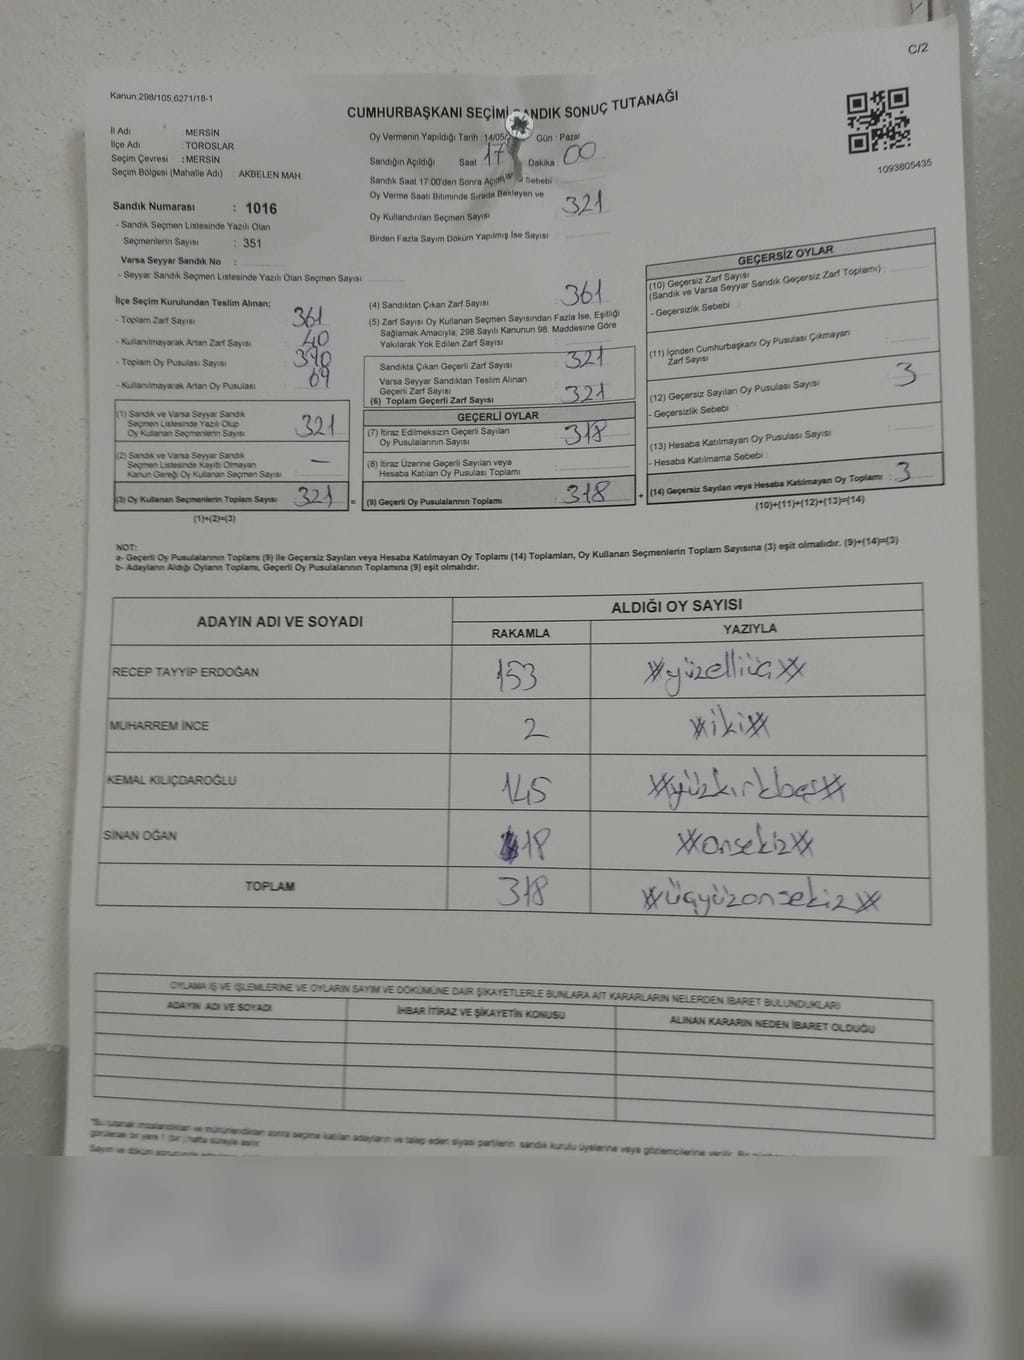 C/2
Kanun:298/105;6271/18-1
CUMHURBAŞKANI SEÇİMİ SANDIK SONUÇ TUTANAĞI
İl Adı : MERSİN
İlçe Adı : TOROSLAR
Seçim Çevresi : MERSİN
Seçim Bölgesi (Mahalle Adı) : AKBELEN MAH.
Oy Vermenin Yapıldığı Tarih :14/05/ Gün : Pazar
Sandığın Açıldığı Saat 17 Dakika 00
Sandık Saat 17:00'den Sonra Sebebi :
Oy Verme Saati Bitiminde Sırada Bekleyen ve
Oy Kullandırılan Seçmen Sayısı : 321
Birden Fazla Sayım Döküm Yapılmış İse Sayısı
1093805435
Sandık Numarası : 1016
- Sandık Seçmen Listesinde Yazılı Olan
Seçmenlerin Sayısı : 351
Varsa Seyyar Sandık No :
- Seyyar Sandık Seçmen Listesinde Yazılı Olan Seçmen Sayısı:
İlçe Seçim Kurulundan Teslim Alınan;
- Toplam Zarf Sayısı : 361
- Kullanılmayarak Artan Zarf Sayısı : 40
- Toplam Oy Pusulası Sayısı : 390
- Kullanılmayarak Artan Oy Pusulası : 69
(1) Sandık ve Varsa Seyyar Sandık
Seçmen Listesinde Yazılı Olup
Oy Kullanan Seçmenlerin Sayısı : 321
(2) Sandık ve Varsa Seyyar Sandık
Seçmen Listesinde Kayıtlı Olmayan
Kanun Gereği Oy Kullanan Seçmen Sayısı : —
(3) Oy Kullanan Seçmenlerin Toplam Sayısı : 321 =
(1)+(2)=(3)
(4) Sandıktan Çıkan Zarf Sayısı : 361
(5) Zarf Sayısı Oy Kullanan Seçmen Sayısından Fazla İse, Eşitliği
Sağlamak Amacıyla, 298 Sayılı Kanunun 98. Maddesine Göre
Yakılarak Yok Edilen Zarf Sayısı :
Sandıkta Çıkan Geçerli Zarf Sayısı : 321
Varsa Seyyar Sandıktan Teslim Alınan
Geçerli Zarf Sayısı
(6) Toplam Geçerli Zarf Sayısı : 321
GEÇERLİ OYLAR
(7) İtiraz Edilmeksizin Geçerli Sayılan
Oy Pusulalarının Sayısı : 318
(8) İtiraz Üzerine Geçerli Sayılan veya
Hesaba Katılan Oy Pusulası Toplamı :
(9) Geçerli Oy Pusulalarının Toplamı : 318 +
GEÇERSİZ OYLAR
(10) Geçersiz Zarf Sayısı
(Sandık ve Varsa Seyyar Sandık Geçersiz Zarf Toplamı) :
- Geçersizlik Sebebi :
(11) İçinden Cumhurbaşkanı Oy Pusulası Çıkmayan
Zarf Sayısı :
(12) Geçersiz Sayılan Oy Pusulası Sayısı : 3
- Geçersizlik Sebebi :
(13) Hesaba Katılmayan Oy Pusulası Sayısı :
- Hesaba Katılmama Sebebi :
(14) Geçersiz Sayılan veya Hesaba Katılmayan Oy Toplamı : 3
(10)+(11)+(12)+(13)=(14)
NOT:
a- Geçerli Oy Pusulalarının Toplamı (9) ile Geçersiz Sayılan veya Hesaba Katılmayan Oy Toplamı (14) Toplamları, Oy Kullanan Seçmenlerin Toplam Sayısına (3) eşit olmalıdır. (9)+(14)=(3)
b- Adayların Aldığı Oyların Toplamı, Geçerli Oy Pusulalarının Toplamına (9) eşit olmalıdır.
ADAYIN ADI VE SOYADI
ALDIĞI OY SAYISI
RAKAMLA YAZIYLA
RECEP TAYYİP ERDOĞAN 153 #yüzelliüç#
MUHARREM İNCE 2 #iki#
KEMAL KILIÇDAROĞLU 145 #yüzkırkbeş#
SİNAN OĞAN 18 #onsekiz#
TOPLAM 318 #üçyüzonsekiz#
OYLAMA İŞ VE İŞLEMLERİNE VE OYLARIN SAYIM VE DÖKÜMÜNE DAİR ŞİKAYETLERLE BUNLARA AİT KARARLARIN NELERDEN İBARET BULUNDUKLARI
ADAYIN ADI VE SOYADI İHBAR İTİRAZ VE ŞİKAYETİN KONUSU ALINAN KARARIN NEDEN İBARET OLDUĞU
*Bu tutanak imzalandıktan ve mühürlendikten sonra seçime katılan adayların ve talep eden siyasi partilerin sandık kurulu üyelerine veya gözlemcilerine verilir. Bir
görülecek bir yere 1 (bir) hafta süreyle asılır.